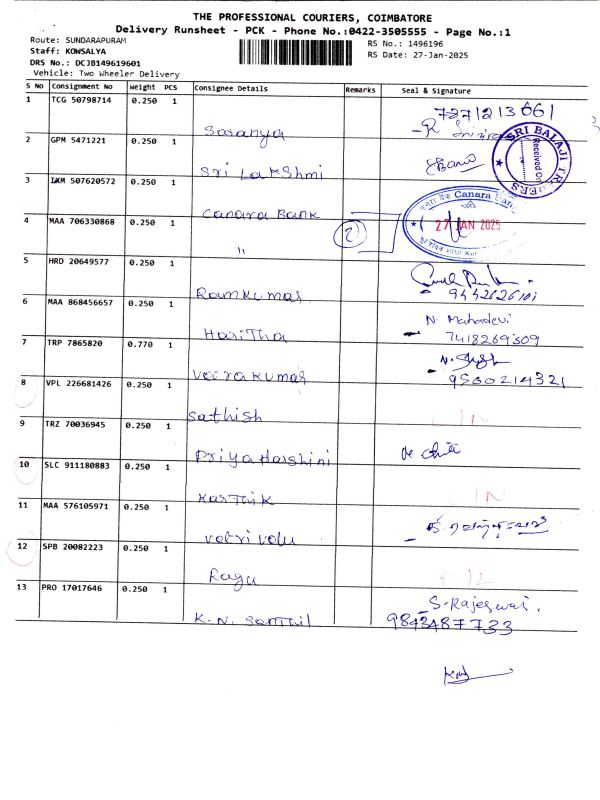 THE PROFESSIONAL COURIERS, COIMBATORE
Delivery Runsheet - PCK - Phone No.:0422-3505555 - Page No.:1
Route: SUNDARAPURAM
RS No.: 1496196
Staff: KOWSALYA
RS Date: 27-Jan-2025
DRS No.: DCJB149619601
Vehicle: Two Wheeler Delivery
S No Consignment No Weight PCS Consignee Details Remarks Seal & Signature
1 TCG 50798714 0.250 1 Saranya 7271213661
2 GPM 5471221 0.250 1 Sri Lakshmi
SRI BALAJI TRADERS
Received On
3 IXM 507620572 0.250 1 Canara Bank
Canara Bank
4 MAA 706330868 0.250 1 " (2) 27 JAN 2025
5 HRD 20649577 0.250 1 Ramkumar
6 MAA 868456657 0.250 1 Haritha N. Mahadevi
7418269309
7 TRP 7865820 0.770 1 Veerakumar
9500214321
8 VPL 226681426 0.250 1 Sathish
9 TRZ 70036945 0.250 1 Priya Harshini
10 SLC 911180883 0.250 1 Karthik
11 MAA 576105971 0.250 1 Vetrivelu
12 SPB 20082223 0.250 1 Ragu
13 PRO 17017646 0.250 1 K. N. Senthil S. Rajeswari.
9843487733